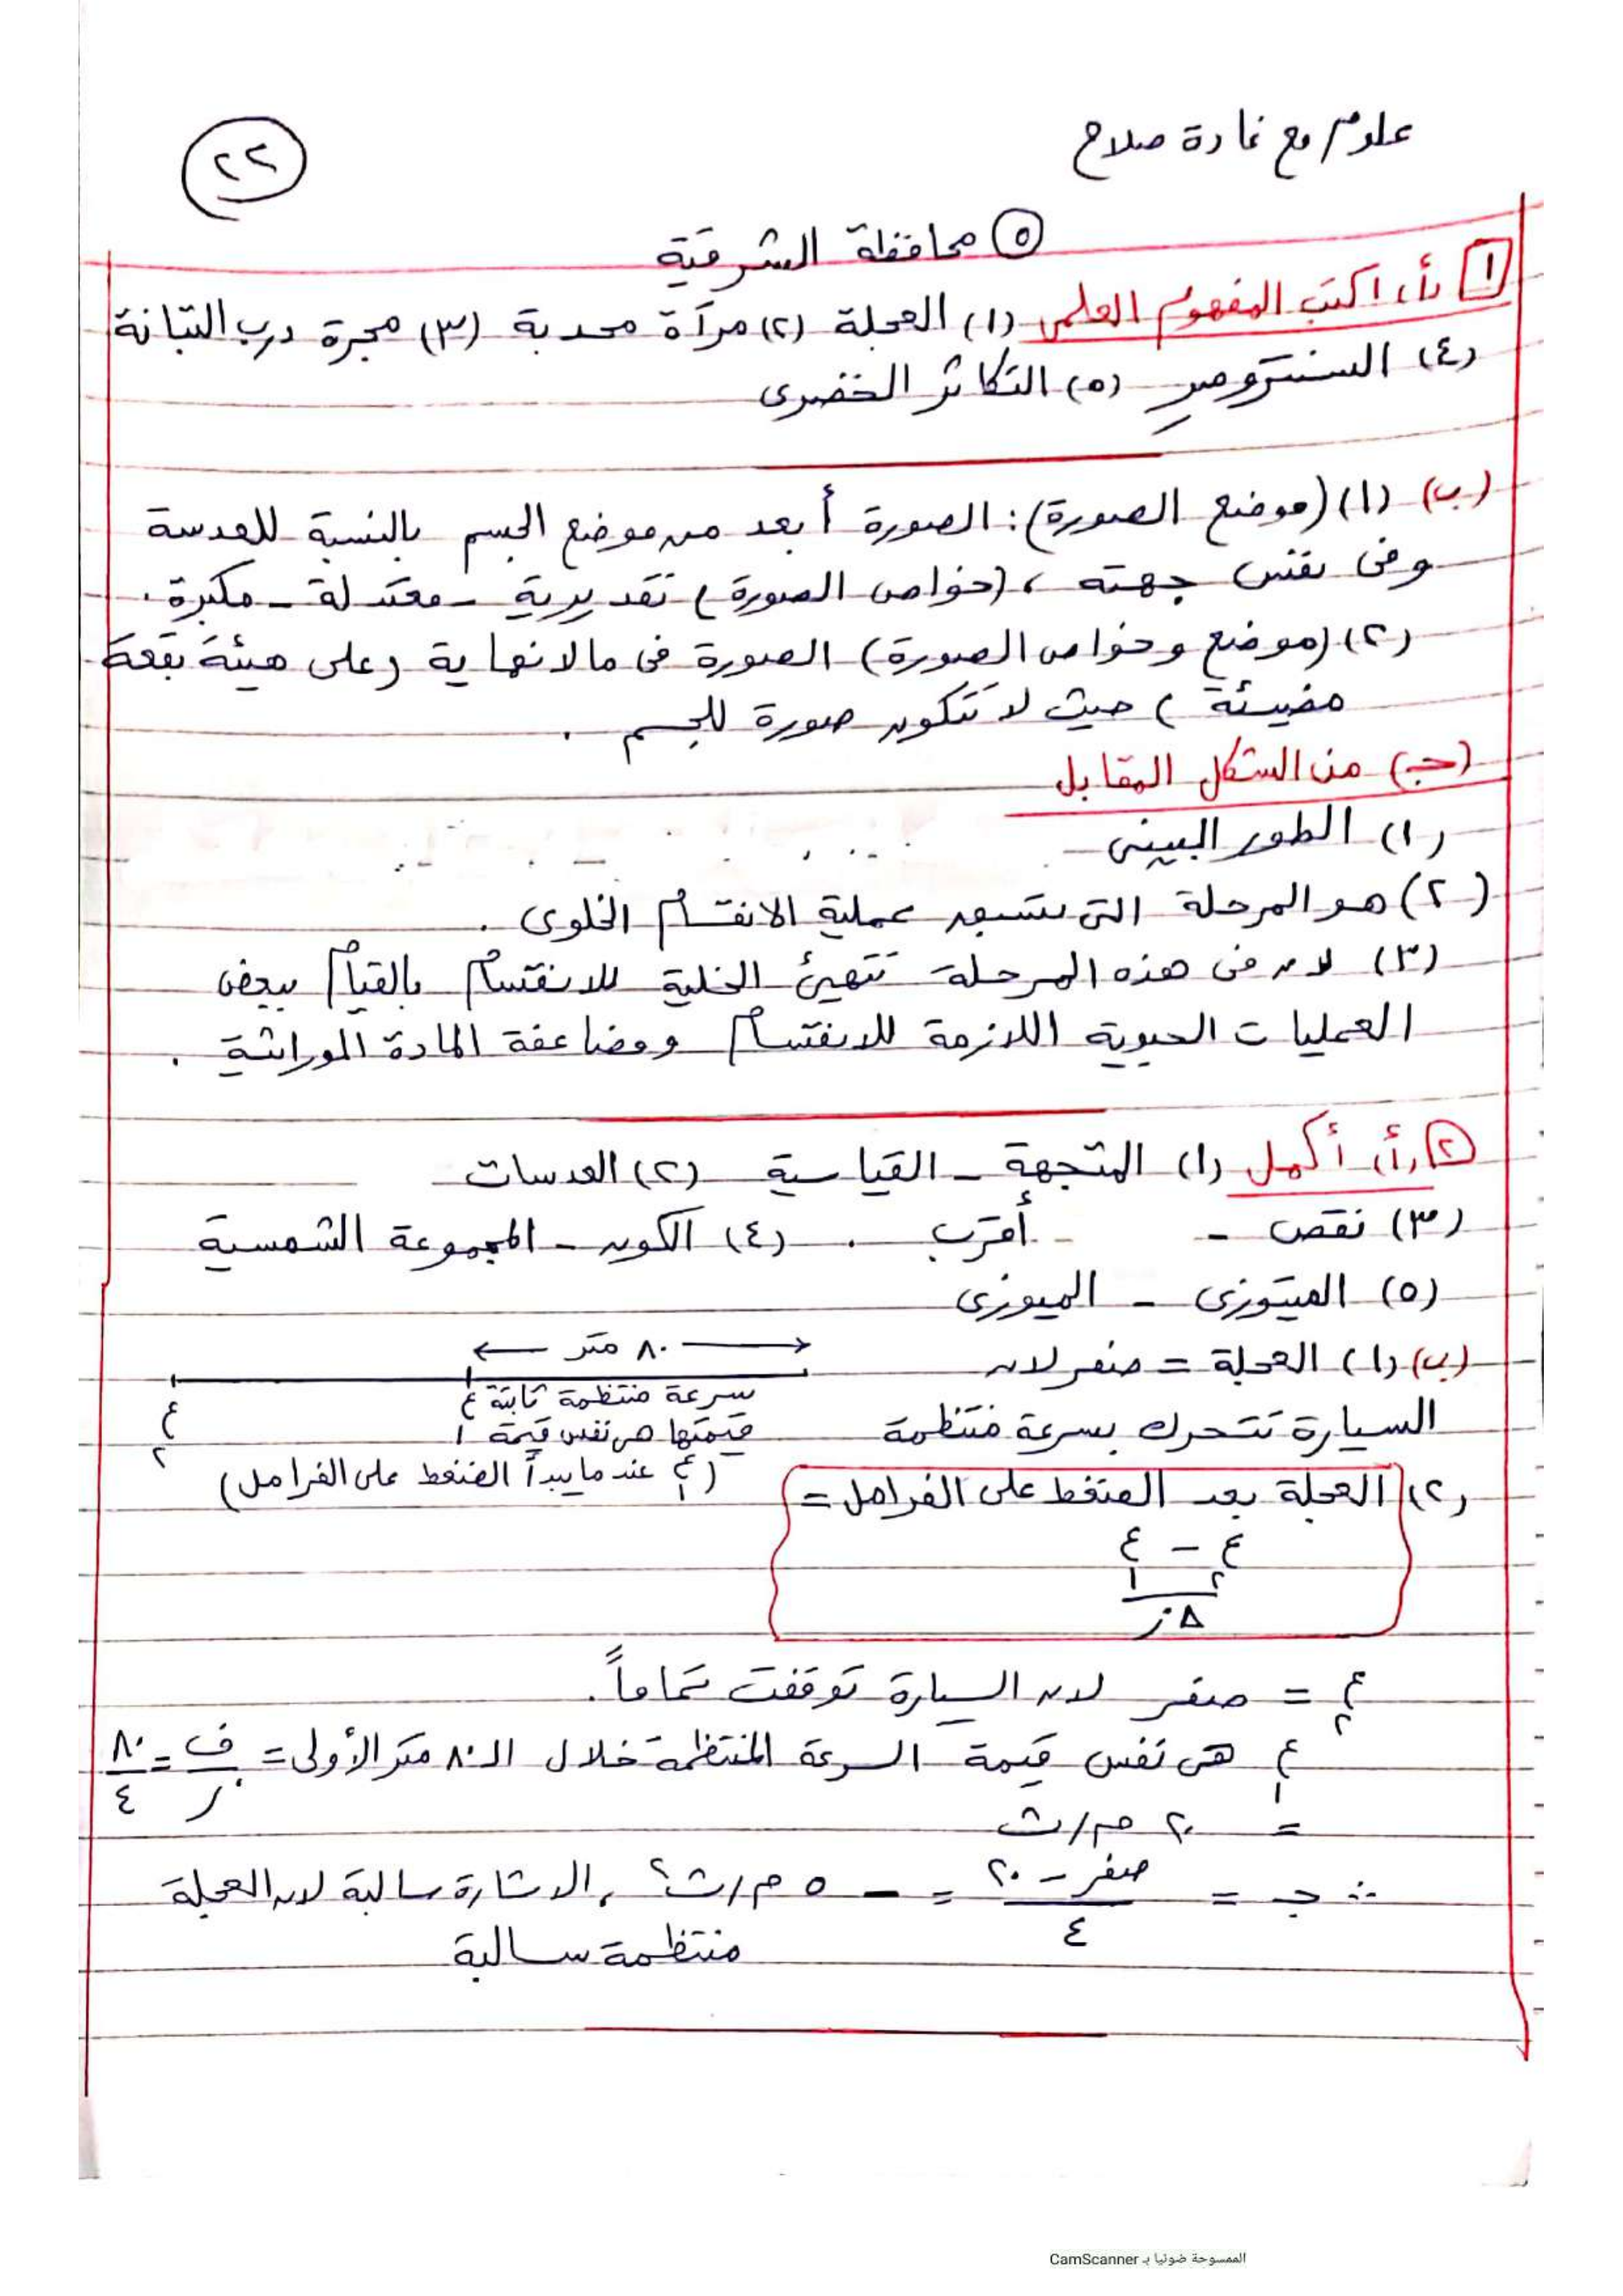 علوم مع غادة صلاح
٢٢
٥ محافظة الشرقية
١ (أ) اكتب المفهوم العلمى (١) العجلة (٢) مرآة محدبة (٣) مجرة درب التبانة
(٤) السنترومير (٥) التكاثر الخضرى
(ب) (١) (موضع الصورة): الصورة أبعد من موضع الجسم بالنسبة للعدسة
وفى نفس جهته، (خواص الصورة) تقديرية - معتدلة - مكبرة.
(٢) (موضع وخواص الصورة) الصورة فى مالانهاية (على هيئة بقعة
مضيئة) حيث لا تتكون صورة للجسم.
(جـ) من الشكل المقابل
(١) الطور البينى
(٢) هو المرحلة التى تسبق عملية الانقسام الخلوى.
(٣) لان فى هذه المرحلة تتهيئ الخلية للانقسام بالقيام ببعض
العمليات الحيوية اللازمة للانقسام ومضاعفة المادة الوراثية.
٢ (أ) أكمل (١) المتجهة - القياسية (٢) العدسات
(٣) نقص - أقرب. (٤) الكون - المجموعة الشمسية
(٥) الميتوزى - الميوزى
(ب) (١) العجلة = صفر لان
٨٠ متر
السيارة تتحرك بسرعة منتظمة
سرعة منتظمة ثابتة
قيمتها هى نفس قيمة ع١
ع٢
(ع١ عندما يبدأ الضغط على الفرامل)
(٢) العجلة بعد الضغط على الفرامل =
ع٢ - ع١
Δز
ع٢ = صفر لان السيارة توقفت تماماً.
ع١ هى نفس قيمة السرعة المنتظمة خلال الـ ٨٠ متر الأولى = ف/ز = ٨٠/٤
= ٢٠ م/ث
∴ جـ = صفر - ٢٠/٤ = - ٥ م/ث٢، الاشارة سالبة لان العجلة
منتظمة سالبة
الممسوحة ضوئيا بـ CamScanner